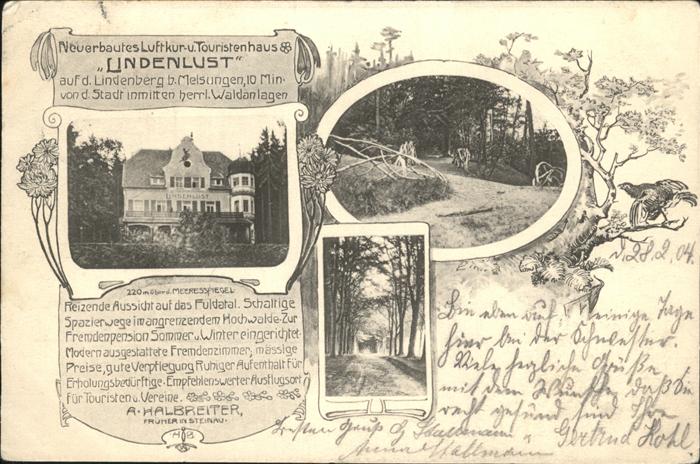 Neuerbautes Luftkur- u. Touristenhaus
„LINDENLUST"
auf d. Lindenberg b. Melsungen, 10 Min.
von d. Stadt inmitten herrl. Waldanlagen
LINDENLUST
220 m über d. MEERESSPIEGEL
Reizende Aussicht auf das Fuldatal. Schattige
Spazierwege im angrenzendem Hochwalde. Zur
Fremdenpension Sommer u. Winter eingerichtet.
Modern ausgestattete Fremdenzimmer, mässige
Preise, gute Verpflegung. Ruhiger Aufenthalt für
Erholungsbedürftige. Empfehlenswerter Ausflugsort
für Touristen u. Vereine.
A. HALBREITER,
FRÜHER IN STEINAU.
d. 28.2.04.
Bin eben auf einige Tage
hier bei der Schwester.
Viele herzliche Grüße
mit dem Wunsche, daß Sie
recht gesund sind Ihre
Gertrud Kohl
Besten Gruß
Anna Stallmann